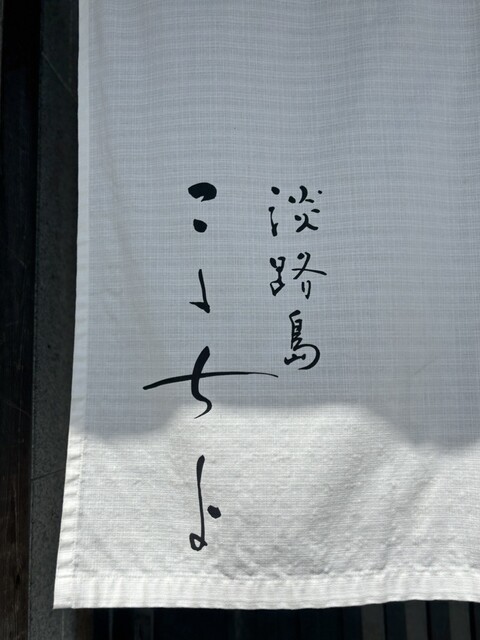 淡路島
こゝちよ